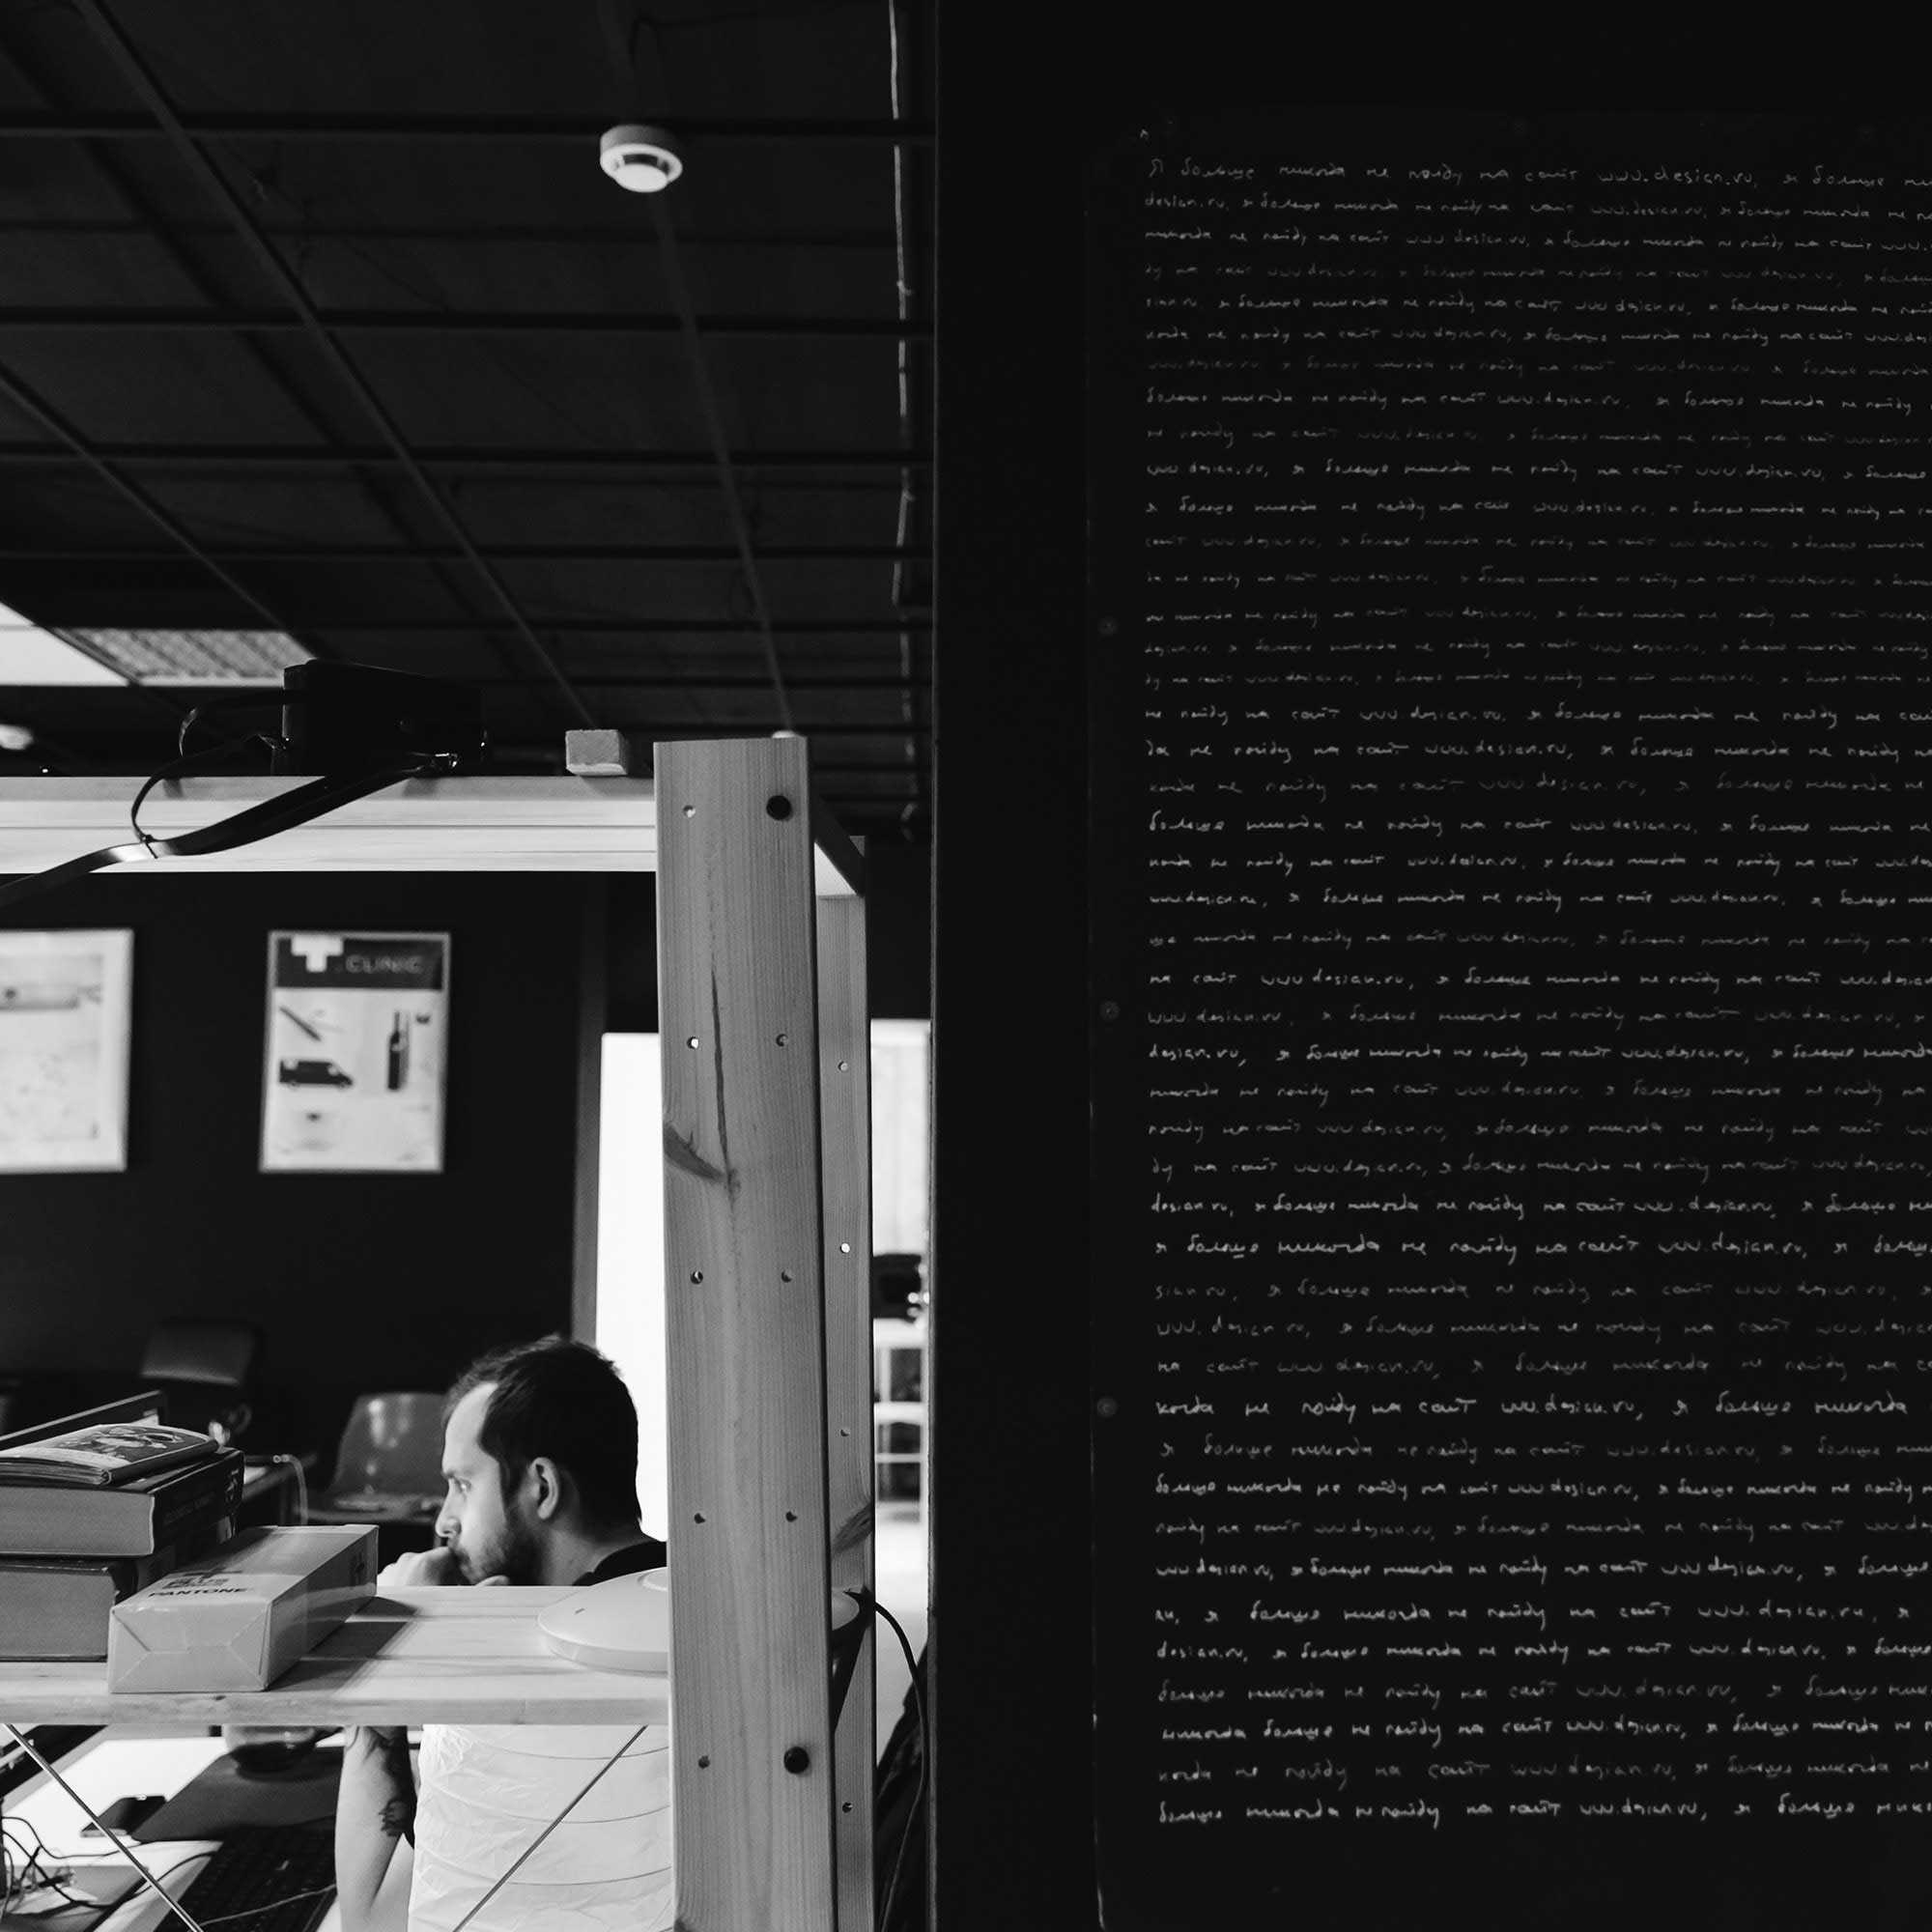 Я больше никогда не пойду на сайт www.design.ru, я больше ни
design.ru, я больше никогда не пойду на сайт www.design.ru, я больше никогда не
никогда не пойду на сайт www.design.ru, я больше никогда не пойду на сайт www.
ду на сайт www.design.ru, я больше никогда не пойду на сайт www.design.ru, я больше
sign.ru, я больше никогда не пойду на сайт www.design.ru, я больше никогда не
когда не пойду на сайт www.design.ru, я больше никогда не пойду на сайт
www.design.ru, я больше никогда не пойду на сайт www.design.ru, я больше никогда
больше никогда не пойду на сайт www.design.ru, я больше никогда не пойду
не пойду на сайт www.design.ru, я больше никогда не пойду на сайт www.design
www.design.ru, я больше никогда не пойду на сайт www.design.ru, я больше
я больше никогда не пойду на сайт www.design.ru, я больше никогда не пойду на
сайт www.design.ru, я больше никогда не пойду на сайт www.design.ru, я больше никогда
да не пойду на сайт www.design.ru, я больше никогда не пойду на сайт www.design.ru, я
не никогда не пойду на сайт www.design.ru, я больше никогда не пойду на сайт
design.ru, я больше никогда не пойду на сайт www.design.ru, я больше никогда не пойду
ду на сайт www.design.ru, я больше никогда не пойду на сайт www.design.ru, я больше никогда не
не пойду на сайт www.design.ru, я больше никогда не пойду на
да не пойду на сайт www.design.ru, я больше никогда не пойду
когда не пойду на сайт www.design.ru, я больше никогда не
больше никогда не пойду на сайт www.design.ru, я больше никогда не
когда не пойду на сайт www.design.ru, я больше никогда не пойду на сайт
www.design.ru, я больше никогда не пойду на сайт www.design.ru, я больше
ше никогда не пойду на сайт www.design.ru, я больше никогда не пойду на
на сайт www.design.ru, я больше никогда не пойду на сайт
www.design.ru, я больше никогда не пойду на сайт www.design.ru, я
design.ru, я больше никогда не пойду на сайт www.design.ru, я больше никогда
никогда не пойду на сайт www.design.ru, я больше никогда не пойду на
пойду на сайт www.design.ru, я больше никогда не пойду на сайт
ду на сайт www.design.ru, я больше никогда не пойду на сайт
design.ru, я больше никогда не пойду на сайт www.design.ru, я больше
я больше никогда не пойду на сайт www.design.ru, я
sign.ru, я больше никогда не пойду на сайт www.design.ru,
www.design.ru, я больше никогда не пойду на сайт
на сайт www.design.ru, я больше никогда не пойду на
когда не пойду на сайт www.design.ru, я больше никогда
я больше никогда не пойду на сайт www.design.ru, я больше
больше никогда не пойду на сайт www.design.ru, я больше никогда не пойду
пойду на сайт www.design.ru, я больше никогда не пойду на сайт
www.design.ru, я больше никогда не пойду на сайт www.design.ru, я больше
ru, я больше никогда не пойду на сайт www.design.ru, я
design.ru, я больше никогда не пойду на сайт www.design.ru, я больше
больше никогда не пойду на сайт www.design.ru, я больше
никогда больше не пойду на сайт www.design.ru, я больше никогда не
когда не пойду на сайт www.design.ru, я больше никогда не
больше никогда не пойду на сайт www.design.ru, я больше
T.CLINIC
PANTONE